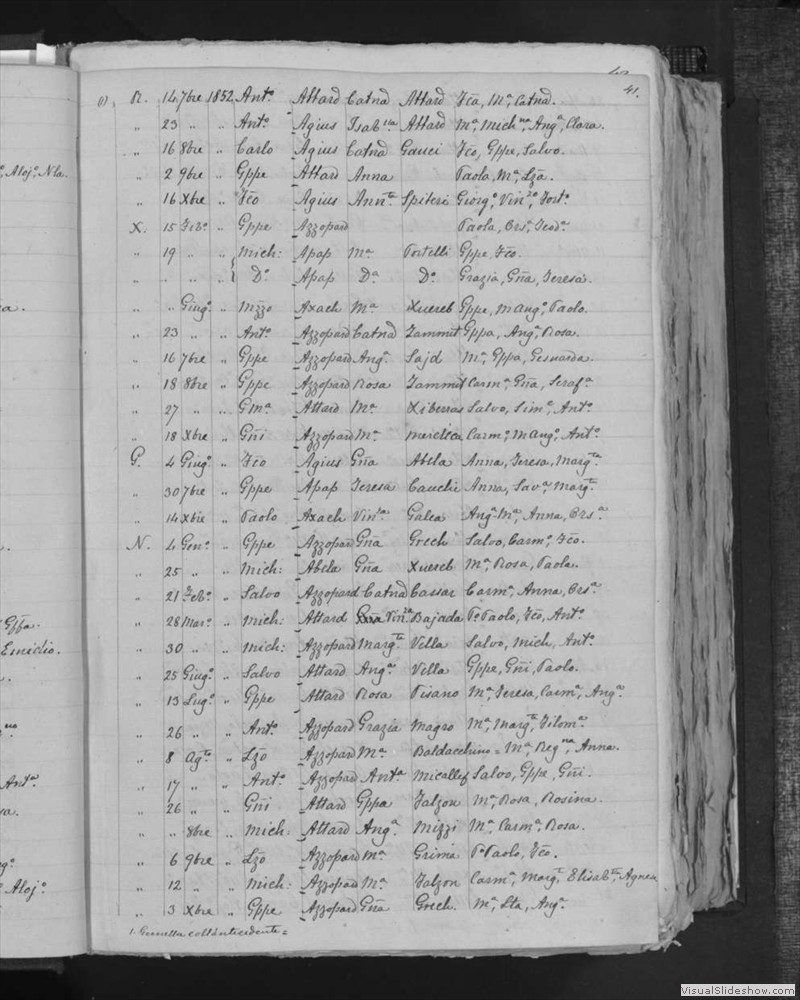 41.
(1) R. 14 7bre 1852 Ant.º Attard Catnª Attard Fcō, Mª, Catnª.
" 23 " " Ant.º Agius Isab.lla Attard Mª, Mich.na, Angª, Clara.
º, Aloj.º, Nla. " 16 8bre " Carlo Agius Catnª Gauci Fcō, Gppe, Salvo.
" 2 9bre " Gppe Attard Anna Paola, Mª, Lzā.
" 16 Xbre " Fcō Agius Ann.ta Spiteri Giorg.º, Vin.zo, Fort.º
X. 15 Feb.º " Gppe Azzopard Paola, Ors.ª, Teod.ª
" 19 " " Mich: Apap Mª Portelli Gppe, Fcō.
" " " " { D.º Apap D.ª D.º Grazia, Gñā, Teresa.
" " Giug.º " Mzzo Axach Mª Xuereb Gppe, M Ang.º, Paolo.
" 23 " " Ant.º Azzopard Catnª Zammit Gppa, Angª, Rosa.
" 16 7bre " Gppe Azzopard Angª Sajd Mª, Gppa, Gesuarda.
" 18 8bre " Gppe Azzopard Rosa Zammit Carmª, Gñā, Seraf.ª
" 27 " " Gmª Attard Mª Xiberras Salvo, Sim.e, Ant.º
" 18 Xbre " Gñi Azzopard Mª Mercieca Carm.º, M Ang.º, Ant.º
G. 4 Giug.º " Fcō Agius Gñā Abela Anna, Teresa, Marg.ta
" 30 7bre " Gppe Apap Teresa Cauchi Anna, Sav.ª, Marg.ta
" 14 Xbre " Paolo Axach Vin.za Galea Angª Mª, Anna, Ors.ª
N. 4 Gen.º " Gppe Azzopard Gñā Grech Salvo, Carm.º, Fcō.
" 25 " " Mich: Abela Gñā Xuereb Mª, Rosa, Paola.
" 21 Feb.º " Salvo Azzopard Catnª Cassar Carmª, Anna, Ors.ª
Gffa. " 28 Mar.º " Mich: Attard Vin.za Bajada P.º Paolo, Fcō, Ant.º
Emidio. " 30 " " Mich: Azzopard Marg.ta Vella Salvo, Mich, Ant.º
" 25 Giug.º " Salvo Attard Angª Vella Gppe, Gñi, Paolo.
" 13 Lug.º " Gppe Attard Rosa Pisano Mª, Teresa, Carmª, Angª
" 26 " " Ant.º Azzopard Grazia Magro Mª, Marg.ta, Filomª
" 8 Ag.to " Lzō Azzopard Mª Baldacchino = Mª, Reg.na, Anna.
Antª " 17 " " Ant.º Azzopard Antª Micallef Salvo, Gppe, Gñi.
" 26 " " Gñi Attard Gppa Falzon Mª, Rosa, Rosina.
" " 8bre " Mich: Attard Angª Mizzi Mª, Carmª, Rosa.
" 6 9bre " Lzō Azzopard Mª Grima P.º Paolo, Fcō.
º Aloj.º " 12 " " Mich: Azzopard Mª Falzon Carmª, Marg.ta, Elisab.ta, Agnes
" 3 Xbre " Gppe Azzopard Gñā Grech. Mª, Lta, Angª.
VisualSlideshow.com